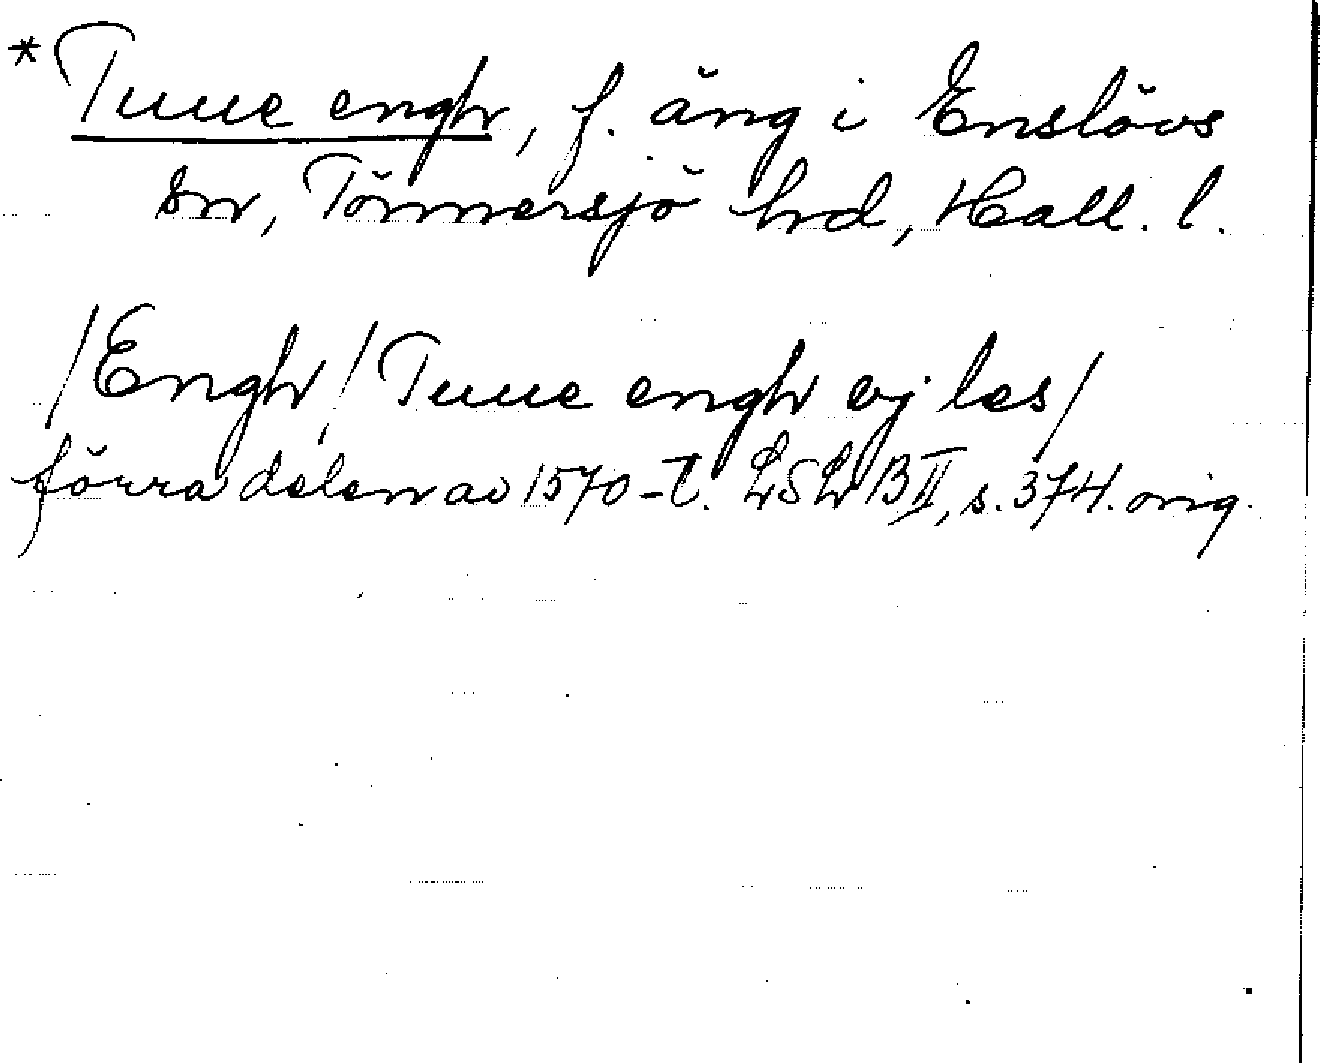 *Tuue engh, f. äng i Enslövs
sn, Tönnersjö hrd, Hall. l.
/Engh/Tuue engh ej les/
förra delen av 1570-t. LSL BII, s. 374. orig.